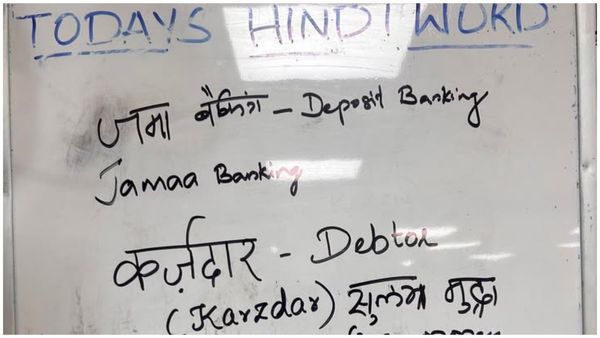 TODAYS HINDI WORD
जमा बैंकिंग - Deposit Banking
Jamaa Banking
कर्ज़दार - Debtor
(Karzdar) सुलभ मुद्रा